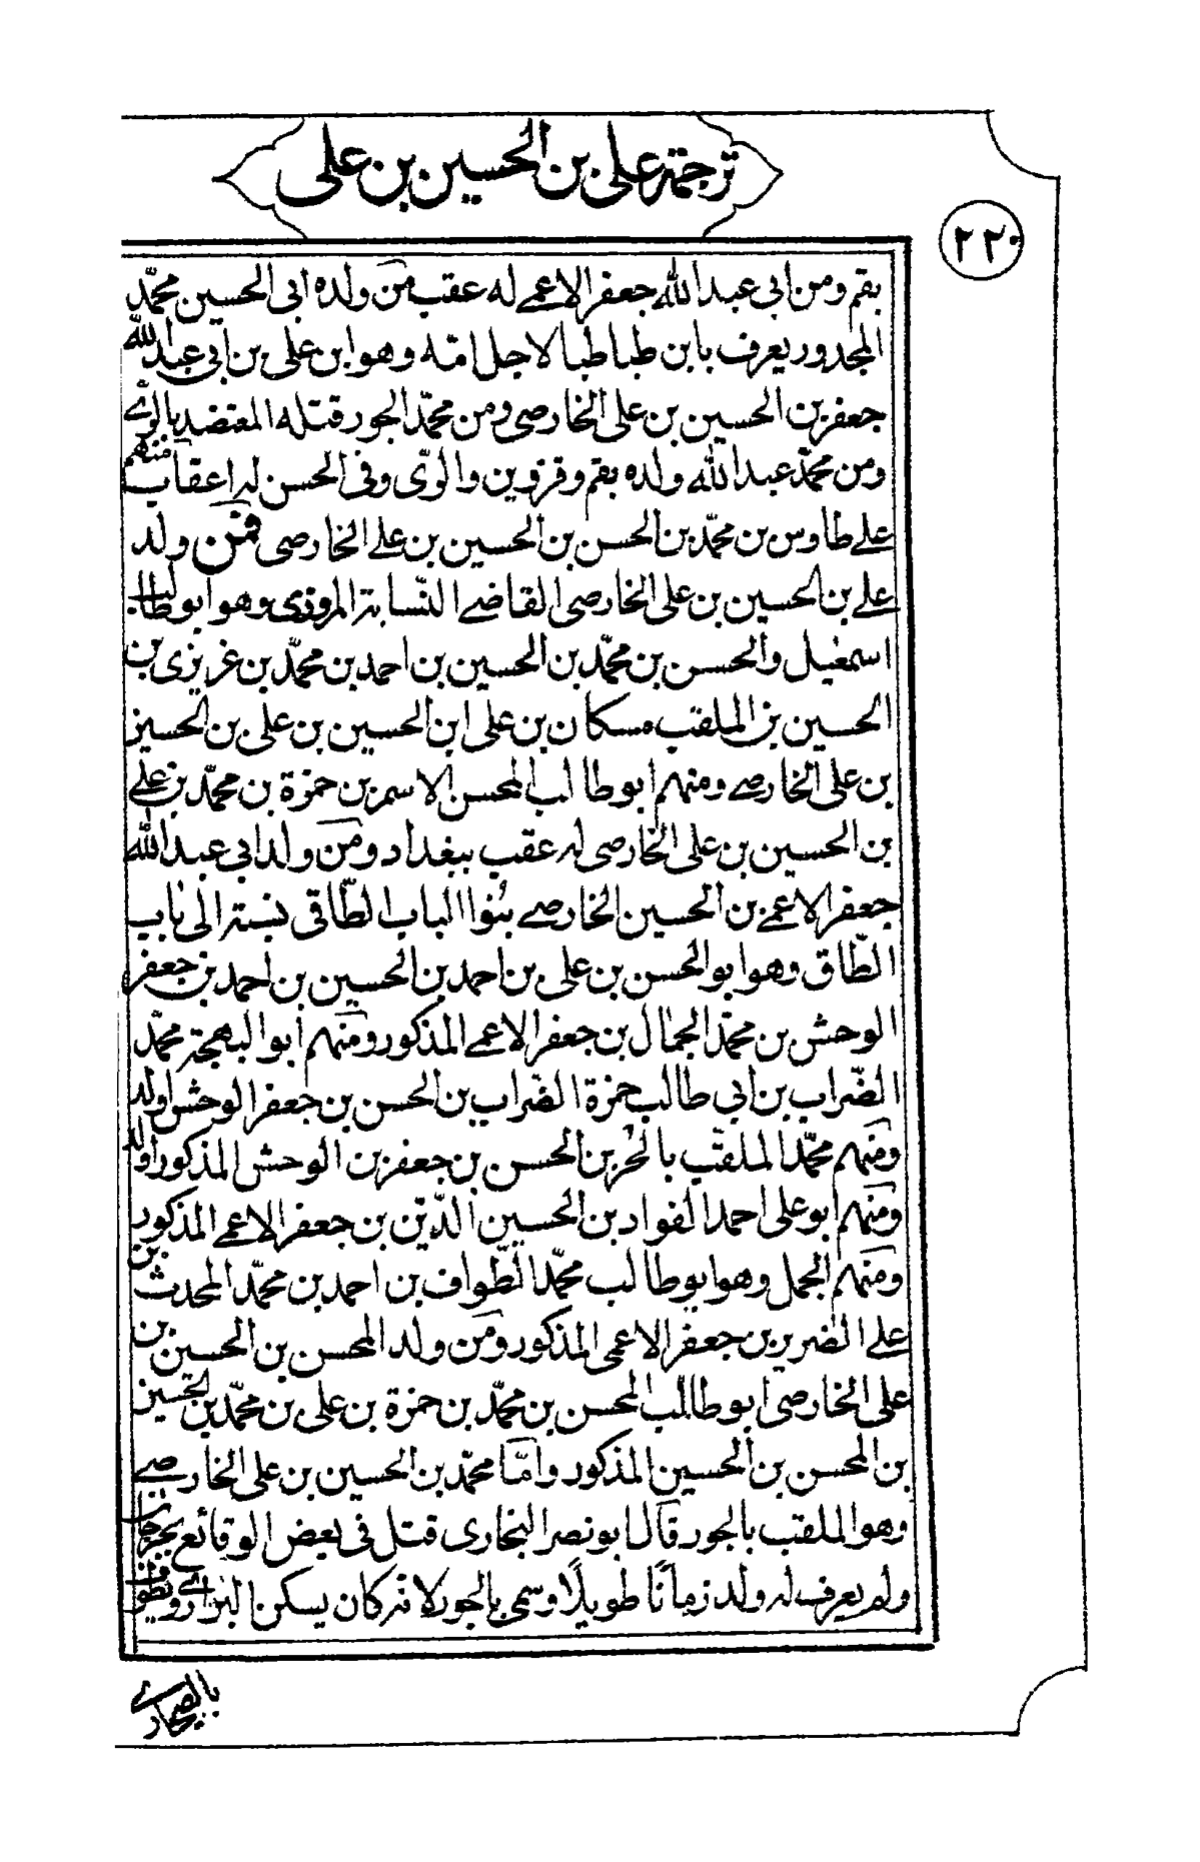 ترجمة على بن الحسين بن على
٢٢٠
بقم ومن ابى عبد الله جعفر الاعمى له عقب من ولده ابى الحسين محمّد
المجدور يعرف بابن طباطبا لاجل امّه وهو ابن على بن ابى عبد الله
جعفر بن الحسين بن على الخارصى ومن محمّد الجور قتله المعتضد بالرى
ومن محمّد عبد الله ولده بقم وقزوين والرّى وفى الحسن له اعقاب منهم
على طاوس بن محمّد بن الحسن بن الحسين بن على الخارصى فمن ولد
على بن الحسين بن على الخارصى القاضى النّسابة المروزى وهو ابو طالب
اسمعيل والحسن بن محمّد بن الحسين بن احمد بن محمّد بن غريزى بن
الحسين بن الملقب مسكان بن على ابن الحسين بن على بن الحسين
بن على الخارصى ومنهم ابو طالب المحسن الاسمر بن حمزة بن محمّد بن على
بن الحسين بن على الخارصى له عقب ببغداد ومن ولد ابى عبد الله
جعفر الاعمى بن الحسين الخارصى بنوا الباب الطّاقى نسبة الى باب
الطّاق وهو ابو الحسن بن على بن احمد بن الحسين بن احمد بن جعفر
الوحش بن محمّد الجمال بن جعفر الاعمى المذكور ومنهم ابو البهجة محمّد
الضّراب بن ابى طالب حمزة الضّراب بن الحسن بن جعفر الوحش اولد
ومنهم محمّد الملقّب بالحُر بن الحسن بن جعفر بن الوحش المذكور اولد
ومنهم ابو على احمد الفواد بن الحسين الدّيّن بن جعفر الاعمى المذكور
ومنهم الجمل وهو ابو طالب محمّد الطّواف بن احمد بن محمّد المحدث بن
على الضرير بن جعفر الاعمى المذكور ومن ولد المحسن بن الحسين بن
على الخارصى ابو طالب المحسن بن محمّد بن حمزة بن على بن محمّد بن الحسين
بن المحسن بن الحسين المذكور وامّا محمّد بن الحسين بن على الخارصى
وهو الملقب بالجور قال ابو نصر البخارى قتل فى بعض الوقائع بجرجان
ولم يعرف له ولد زمانًا طويلًا وسمى بالجور لانه كان يسكن البرارى ويطوف
بالصحارى